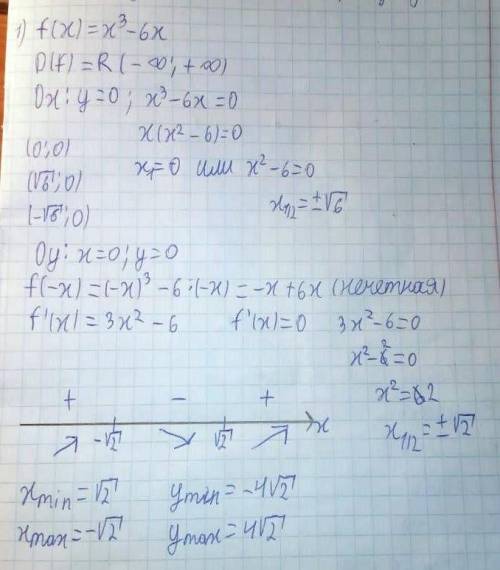 1) f(x) = x³ - 6x
D(f) = R (-∞; +∞)
Ox: y=0; x³-6x=0
x(x²-6)=0
(0;0)
x₁=0 или x²-6=0
(√6;0)
x₁/₂=±√6
(-√6;0)
Oy: x=0; y=0
f(-x) = (-x)³ - 6·(-x) = -x+6x (нечетная)
f'(x) = 3x² - 6 f'(x)=0 3x²-6=0
x²-2=0
x²=2
+ - +
-√2 √2 x
x₁/₂=±√2
xmin=√2 ymin=-4√2
xmax=-√2 ymax=4√2